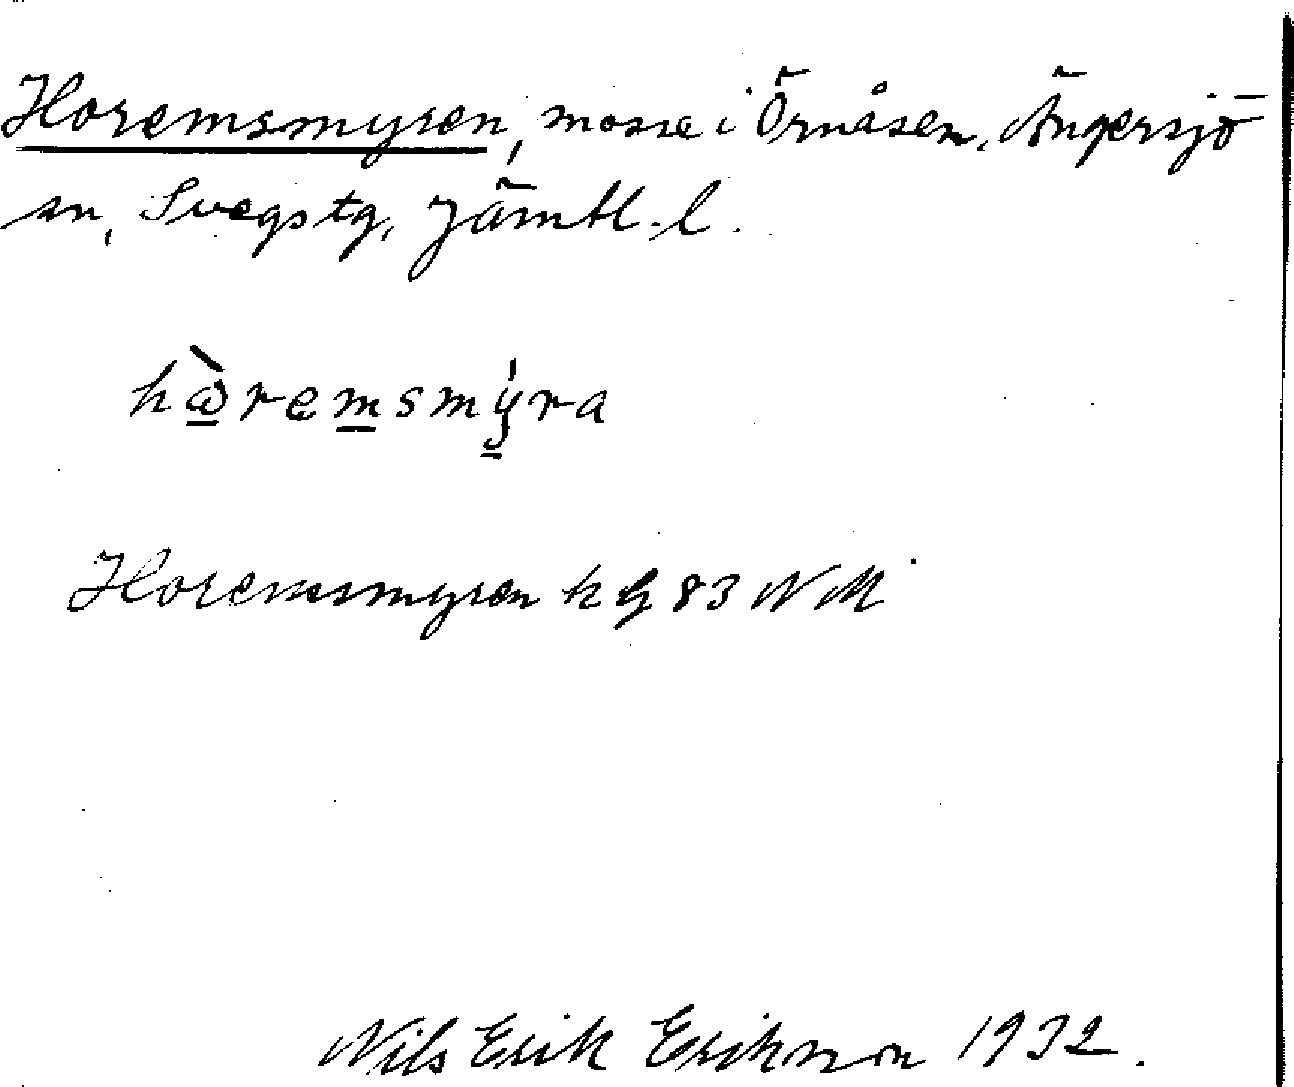 Horemsmyren, mosse i Örnåsen, Ängersjö
sn, Svegs tg, Jämtl. l.
hɷ̀remsmýra
Horemsmyren k 83 NM
Nils Erik Erikson 1932.